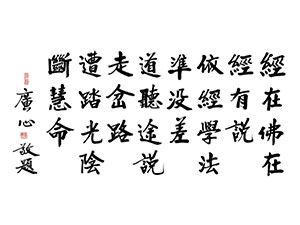 經在佛在
經有説
依經學法
準没差
道聽途説
走岔路
遭踏光陰
斷慧命
廣心敬題